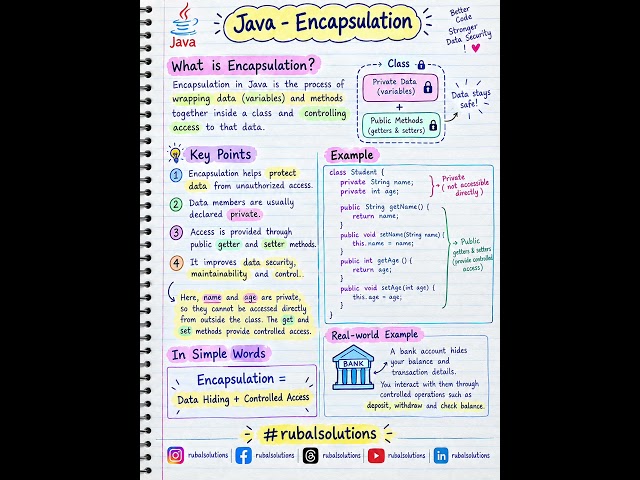 Java
Java - Encapsulation
Better
Code
Stronger
Data Security
!
What is Encapsulation?
Encapsulation in Java is the process of
wrapping data (variables) and methods
together inside a class and controlling
access to that data.
Class
Private Data
(variables)
+
Public Methods
(getters & setters)
Data stays
safe!
Key Points
1 Encapsulation helps protect
data from unauthorized access.
2 Data members are usually
declared private.
3 Access is provided through
public getter and setter methods.
4 It improves data security,
maintainability and control..
Here, name and age are private,
so they cannot be accessed directly
from outside the class. The get and
set methods provide controlled access.
In Simple Words
Encapsulation =
Data Hiding + Controlled Access
Example
class Student {
private String name;
private int age;
public String getName() {
return name;
}
public void setName(String name) {
this.name = name;
}
public int getAge () {
return age;
}
public void setAge(int age) {
this.age = age;
}
}
Private
( not accessible
directly )
Public
getters & setters
(provide controlled
access)
Real-world Example
BANK
A bank account hides
your balance and
transaction details.
You interact with them through
controlled operations such as
deposit, withdraw and check balance.
#rubalsolutions
rubalsolutions | rubalsolutions | rubalsolutions | rubalsolutions | in rubalsolutions